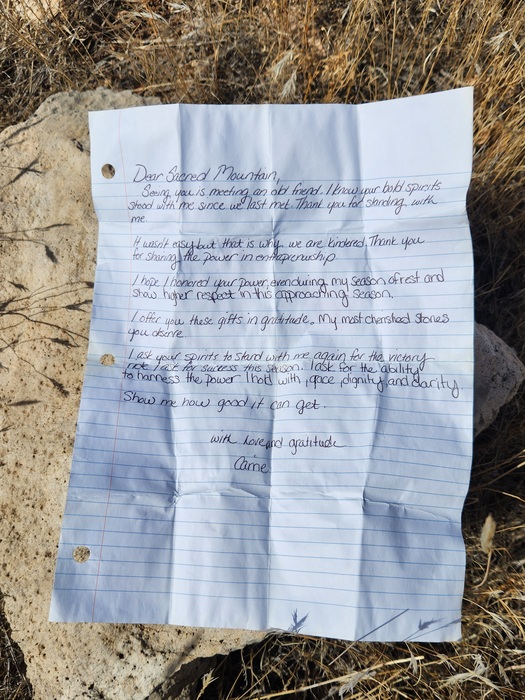 Dear Sacred Mountain,
Seeing you is meeting an old friend. I know your bold spirits
stood with me since we last met. Thank you for standing with
me.
It wasn't easy but that is why we are kindered. Thank you
for sharing the power in entreprenuership.
I hope I honored your power, even during my season of rest and
show higher respect in this approaching season.
I offer you these gifts in gratitude. My most cherished stones
you desire.
I ask your spirits to stand with me again for the victory
I ask for success this season. I ask for the ability
to harness the power I hold with grace, dignity, and clarity.
Show me how good it can get.
with love and gratitude
Carrie